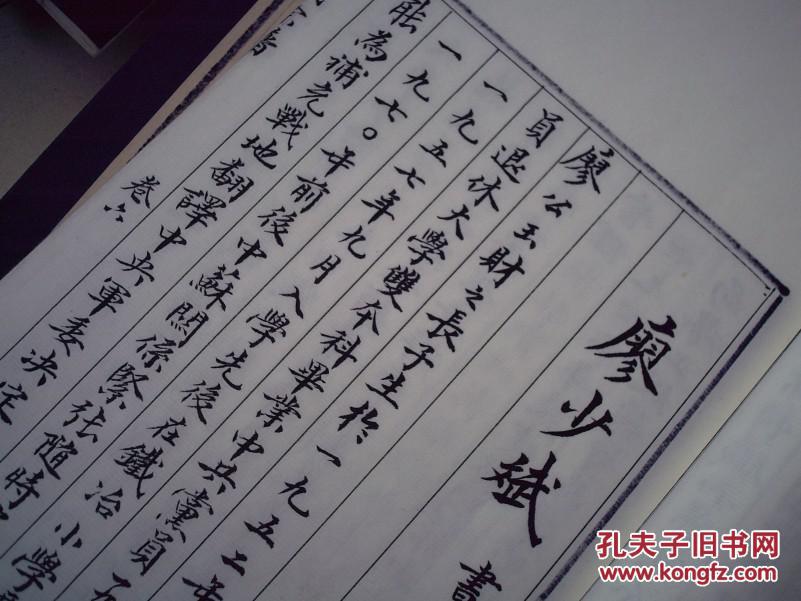 廖少斌 書
廖公玉財之長子生於一九五二年
員退休大學雙本科畢業中共黨員
一九五七年九月入學先後在鐵冶小學
一九七〇年前後中蘇關係緊張隨時
能為浦充戰地翻譯中央軍委決定
卷六
孔夫子旧书网
www.kongfz.com